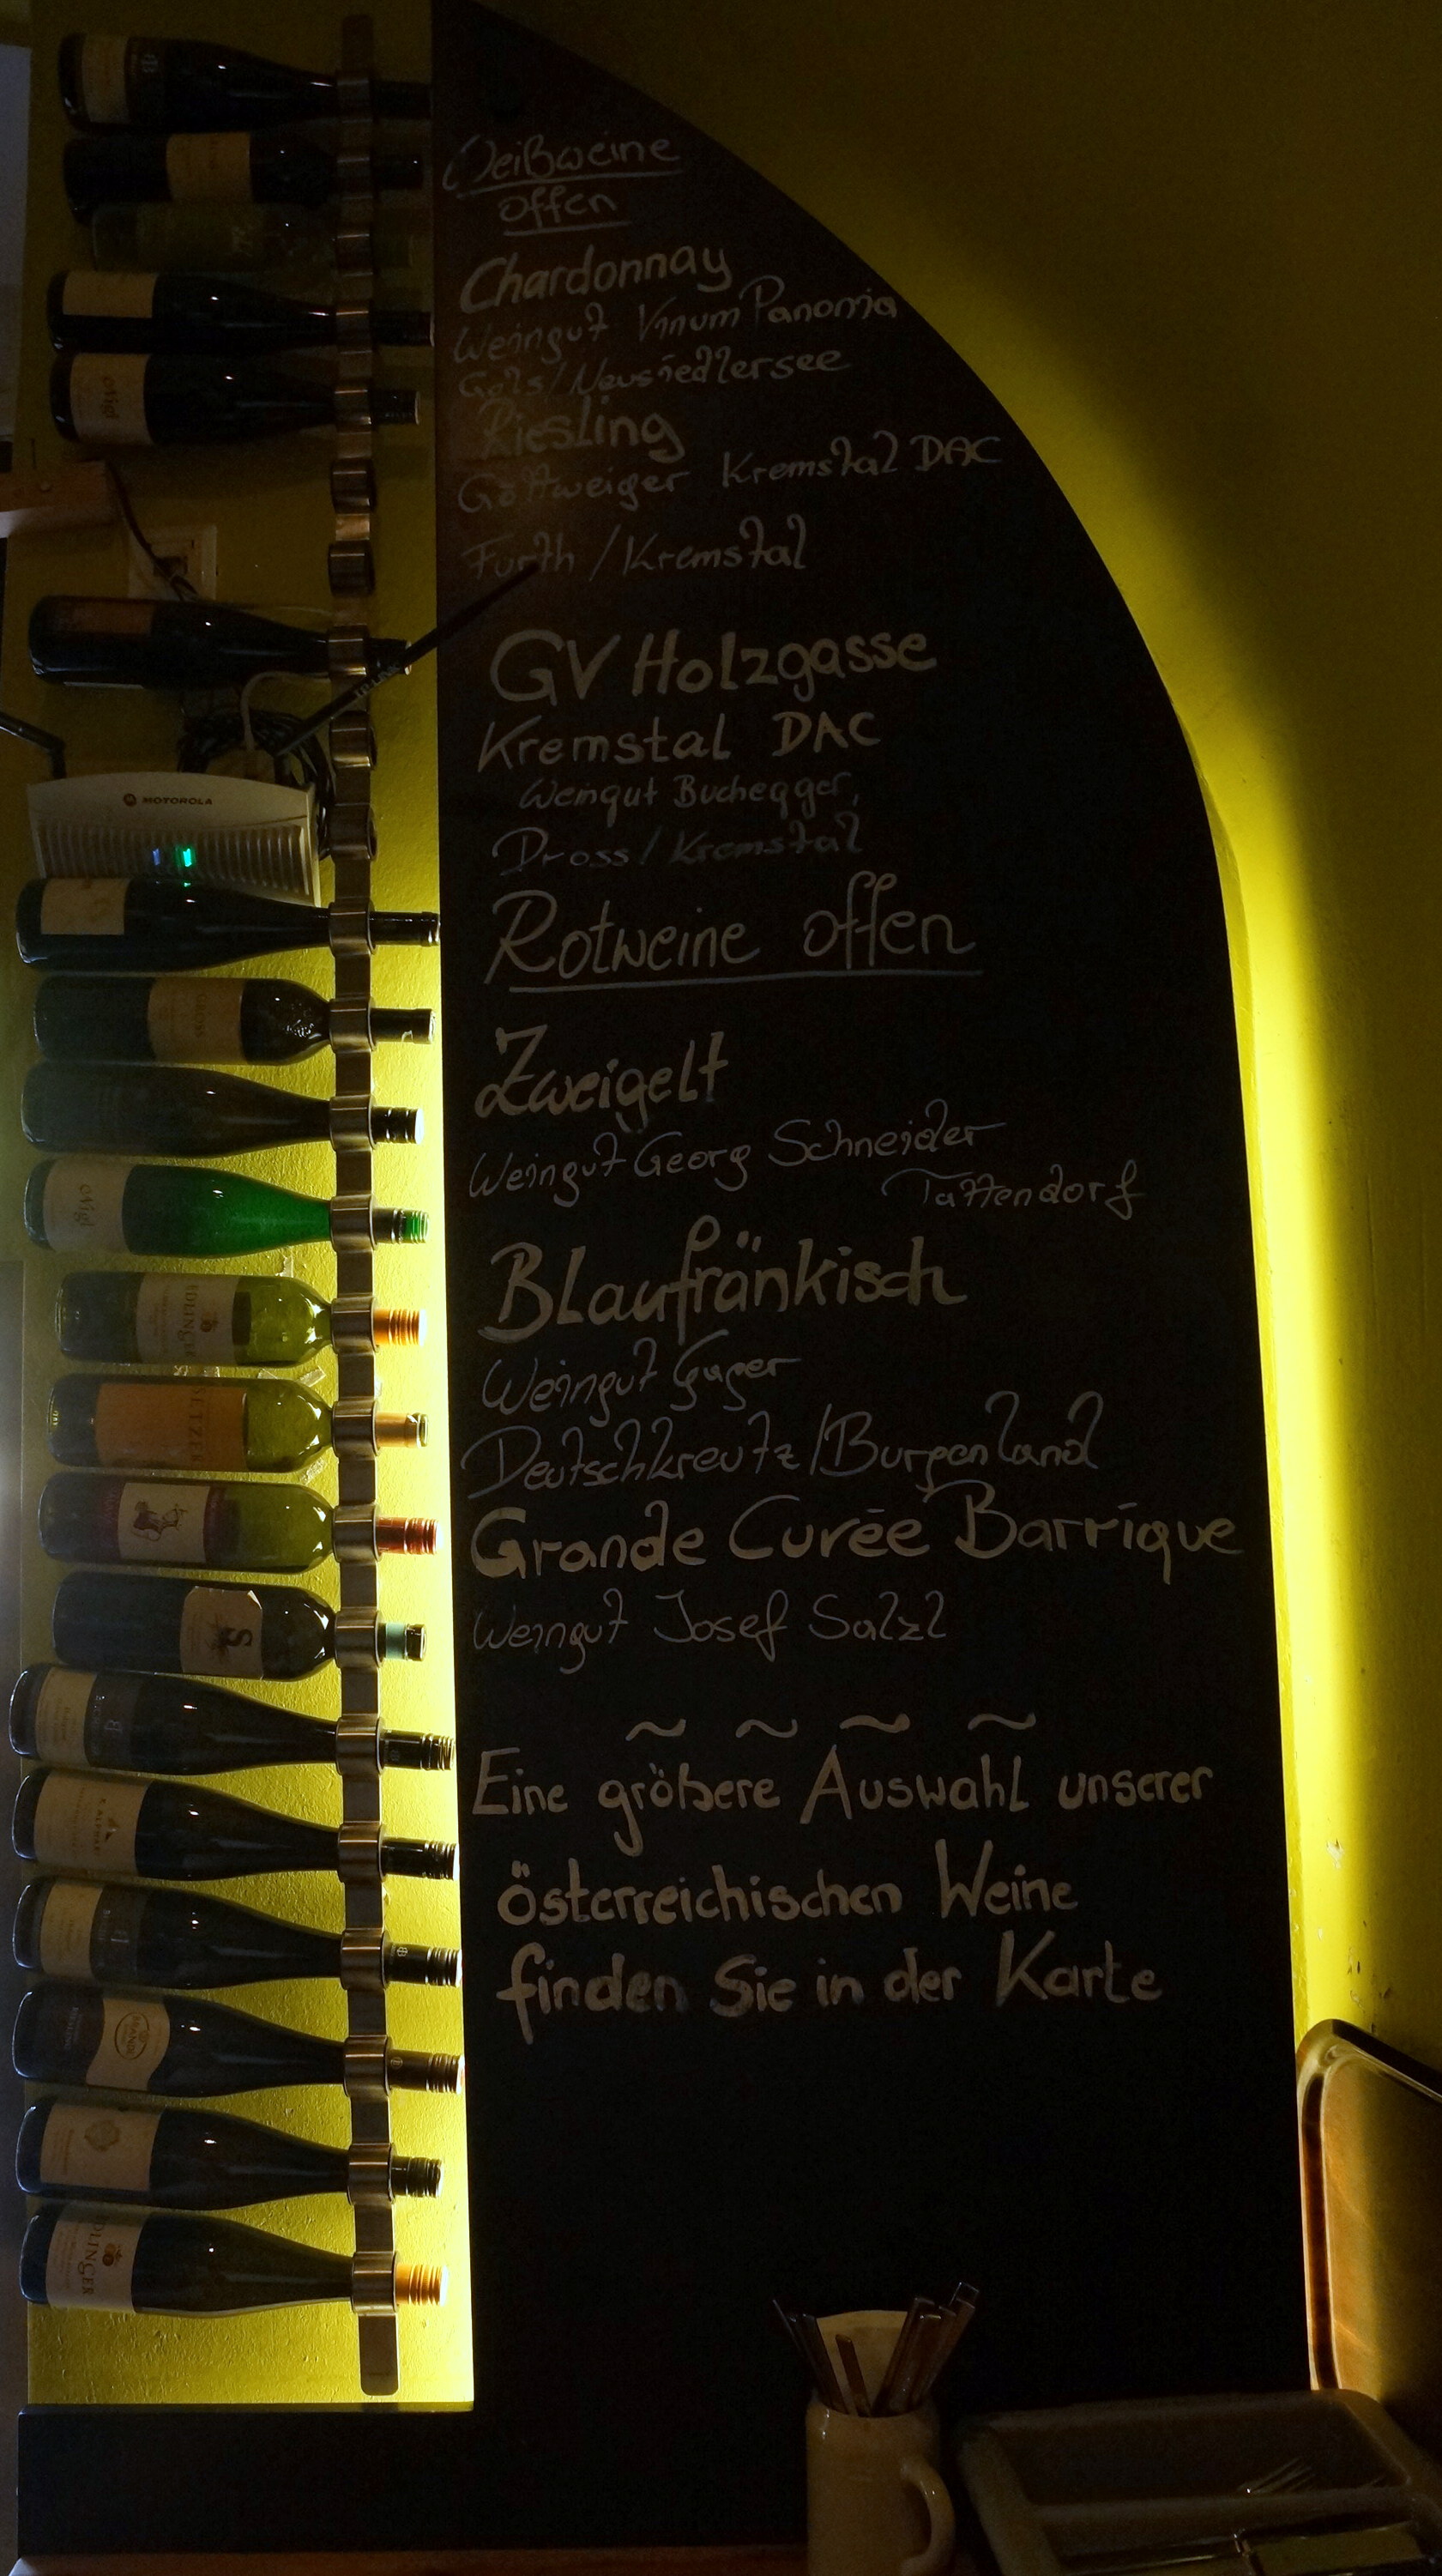 Weißweine
offen
Chardonnay
Weingut Vinum Panonia
Gols/Neusiedlersee
Riesling
Göttweiger Kremstal DAC
Furth / Kremstal
GV Holzgasse
Kremstal DAC
Weingut Buchegger,
Dross / Kremstal
Rotweine offen
Zweigelt
Weingut Georg Schneider
Tattendorf
Blaufränkisch
Weingut Gager
Deutschkreutz/Burgenland
Grande Curée Barrique
Weingut Josef Salzl
~ ~ ~ ~
Eine größere Auswahl unserer
österreichischen Weine
finden Sie in der Karte
MOTOROLA
Nigl
Nigl